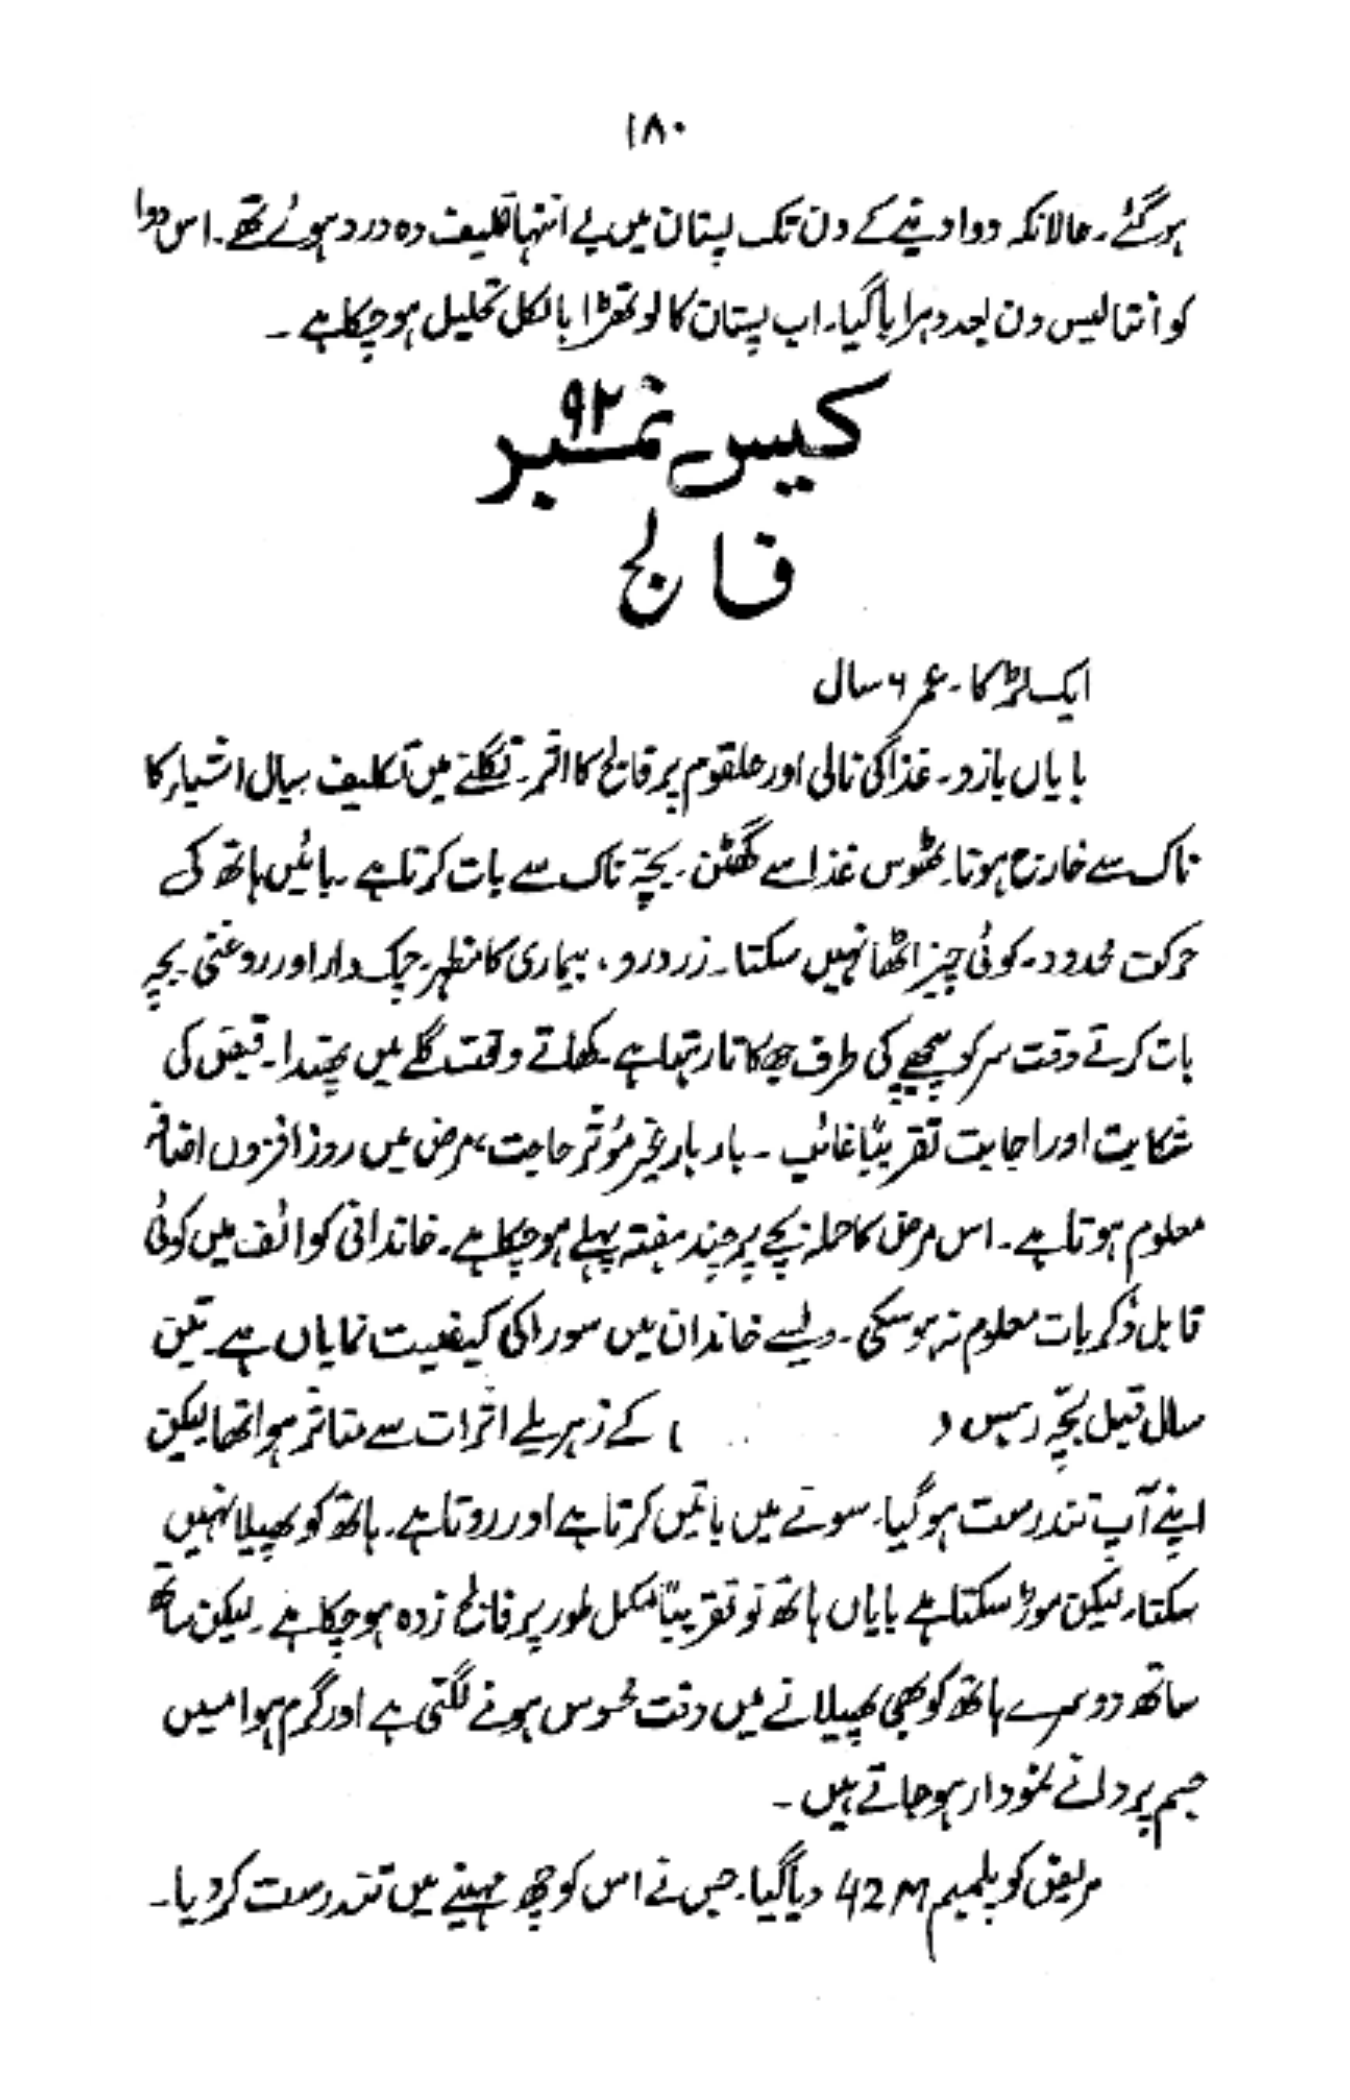 ۱۸۰
ہو گئے۔ حالانکہ دوا دینے کے دن تک پستان میں بے انتہا تکلیف دہ درد ہوئے تھے۔ اس دوا
کو انتالیس دن بعد دہرایا گیا۔ اب پستان کا لوتھڑا بالکل تحلیل ہو چکا ہے۔
کیس نمبر ۹۲
فالج
ایک لڑکا۔ عمر ۶ سال
بایاں بازو۔ غذا کی نالی اور حلقوم پر فالج کا اثر۔ نگلنے میں تکلیف سیال اشیاء کا
ناک سے خارج ہونا۔ ٹھوس غذا سے گھٹن۔ بچّہ ناک سے بات کرتا ہے۔ بائیں ہاتھ کی
حرکت محدود۔ کوئی چیز اٹھا نہیں سکتا۔ زرد رو، بیماری کا مظہر۔ چمک دار اور روغنی۔ بچہ
بات کرتے وقت سر کو پیچھے کی طرف جھکاتا رہتا ہے۔ کھاتے وقت گلے میں پھندا۔ قبض کی
شکایت اور اجابت تقریباً غائب۔ بار بار غیر مؤثر حاجت، مرض میں روز افزوں اضافہ
معلوم ہوتا ہے۔ اس مرض کا حملہ بچے پر چند ہفتہ پہلے ہو چکا ہے۔ خاندانی کوائف میں کوئی
قابل ذکر بات معلوم نہ ہو سکی۔ ویسے خاندان میں سورا کی کیفیت نمایاں ہے۔ تین
سال قبل بچّہ رہس ( ) کے زہریلے اثرات سے متاثر ہوا تھا لیکن
اپنے آپ تندرست ہو گیا۔ سوتے میں باتیں کرتا ہے اور روتا ہے۔ ہاتھ کو پھیلا نہیں
سکتا۔ لیکن موڑ سکتا ہے بایاں ہاتھ تو تقریباً مکمل طور پر فالج زدہ ہو چکا ہے۔ لیکن ساتھ
ساتھ دوسرے ہاتھ کو بھی پھیلانے میں دقت محسوس ہونے لگتی ہے اور گرم ہوا میں
جسم پر دانے نمودار ہو جاتے ہیں۔
مریض کو پلمبم 42M دیا گیا۔ جس نے اس کو چھ مہینے میں تندرست کر دیا۔